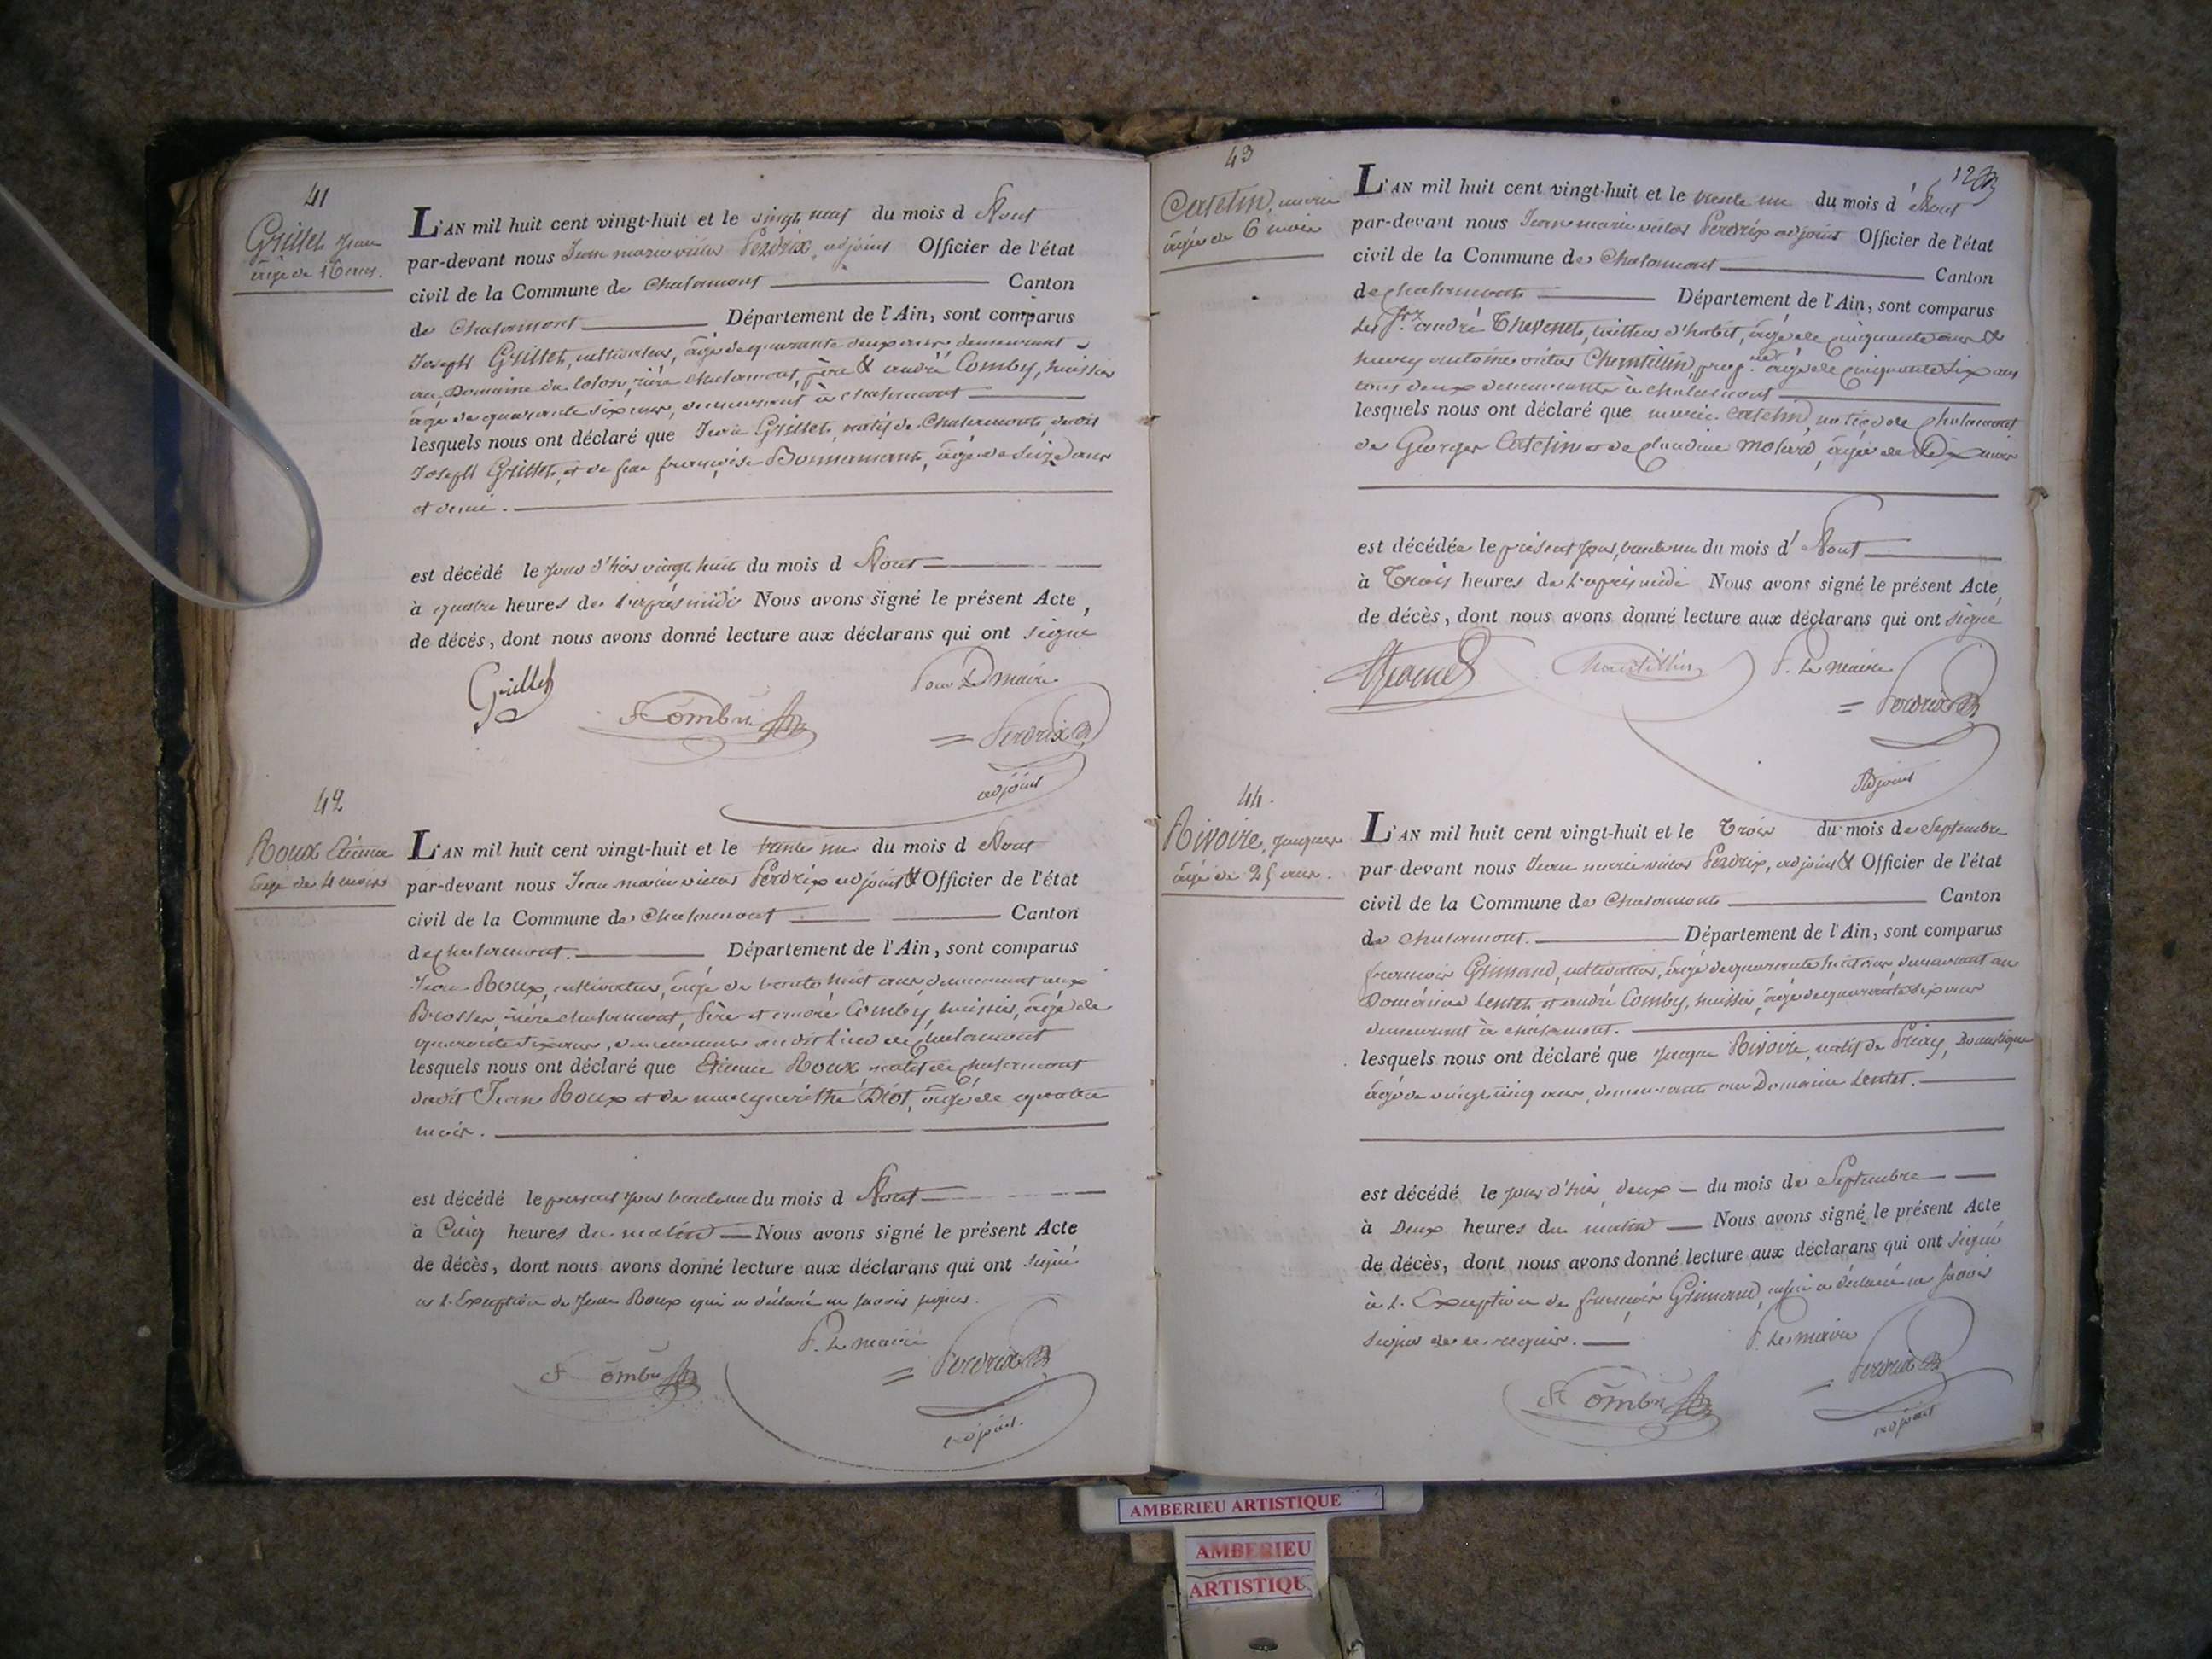 41
Grillet Jean
âgé de 16 ans.
L'AN mil huit cent vingt-huit et le vingt neuf du mois d Aout
par-devant nous Jean marie victor Perdrix, adjoint Officier de l'état
civil de la Commune de Chalamont Canton
de Chalamont Département de l'Ain, sont comparus
Joseph Grillet, cultivateur, âgé de quarante deux ans demeurant
au Domaine du Colon, rière chalamont, père & andré Comby, huissier
âgé de quarante six ans, demeurant à chalamont
lesquels nous ont déclaré que Jean Grillet, natif de Chalamont, dudit
Joseph Grillet, et de feue françoise Bonnamant, âgé de seize ans
et demi.
est décédé le jour d'hier vingt huit du mois d Aout
à quatre heures de l'après midi Nous avons signé le présent Acte,
de décés, dont nous avons donné lecture aux déclarans qui ont signé
Grillet
Pour Le maire
Comby
Perdrix
adjoint
42
Roux Etienne
âgé de 4 mois
L'AN mil huit cent vingt-huit et le trente un du mois d Aout
par-devant nous Jean marie victor Perdrix adjoint & Officier de l'état
civil de la Commune de Chalamont Canton
de chalamont. Département de l'Ain, sont comparus
Jean Roux, cultivateur, âgé de trente huit ans, demeurant aux
Brosses, rière chalamont, Père et andré Comby, huissier, âgé de
quarante six ans, demeurant au dit lieu de chalamont
lesquels nous ont déclaré que Etienne Roux natif de chalamont
dudit Jean Roux et de marguerithe Diot, âgé de quatre
mois.
est décédé le present jour trente un du mois d Aout
à Cinq heures du matin Nous avons signé le présent Acte
de décès, dont nous avons donné lecture aux déclarans qui ont signé
a l'Exception de Jean Roux qui a déclaré ne savoir signer.
P. Le maire
Comby
Perdrix
adjoint.
43
Catelin, marie
âgée de 6 mois
12
L'AN mil huit cent vingt-huit et le trente un du mois d' Aout
par-devant nous Jean marie victor Perdrix adjoint Officier de l'état
civil de la Commune de Chalamont Canton
de chalamont Département de l'Ain, sont comparus
les Srs andré Thevenet, tailleur d'habit, âgé de cinquante ans &
antoine victor Chantillin, prop.re âgé de cinquante six ans
tous deux demeurants à chalamont
lesquels nous ont déclaré que marie Catelin, native de chalamont
de Georges Catelin et de claudine Molard, âgée de Six mois
est décédée le présent jour, trente un du mois d' Aout
à Trois heures de l'après midi Nous avons signé le présent Acte,
de décès, dont nous avons donné lecture aux déclarans qui ont signé
Chantillin
P. Le maire
Perdrix
Adjoint
44.
Rivoire, Jacques
âgé de 25 ans.
L'AN mil huit cent vingt-huit et le Trois du mois de Septembre
par-devant nous Jean marie victor Perdrix, adjoint & Officier de l'état
civil de la Commune de Chalamont Canton
de chalamont. Département de l'Ain, sont comparus
françois Grimand, cultivateur, âgé de quarante huit ans, demeurant au
Domaine Lentet, et andré Comby, huissier, âgé de quarante six ans
demeurant à chalamont.
lesquels nous ont déclaré que Jacque Rivoire, natif de Priay, Domestique
âgé de vingt cinq ans, demeurant au Domaine Lentet.
est décédé le jour d'hier, deux du mois de Septembre
à Deux heures du matin Nous avons signé le présent Acte
de décès, dont nous avons donné lecture aux déclarans qui ont signé
à l'Exception de françois Grimand, qui a déclaré ne savoir
signer de ce requis.
P. Le maire
Perdrix
Comby
adjoint
AMBERIEU ARTISTIQUE
AMBERIEU
ARTISTIQU